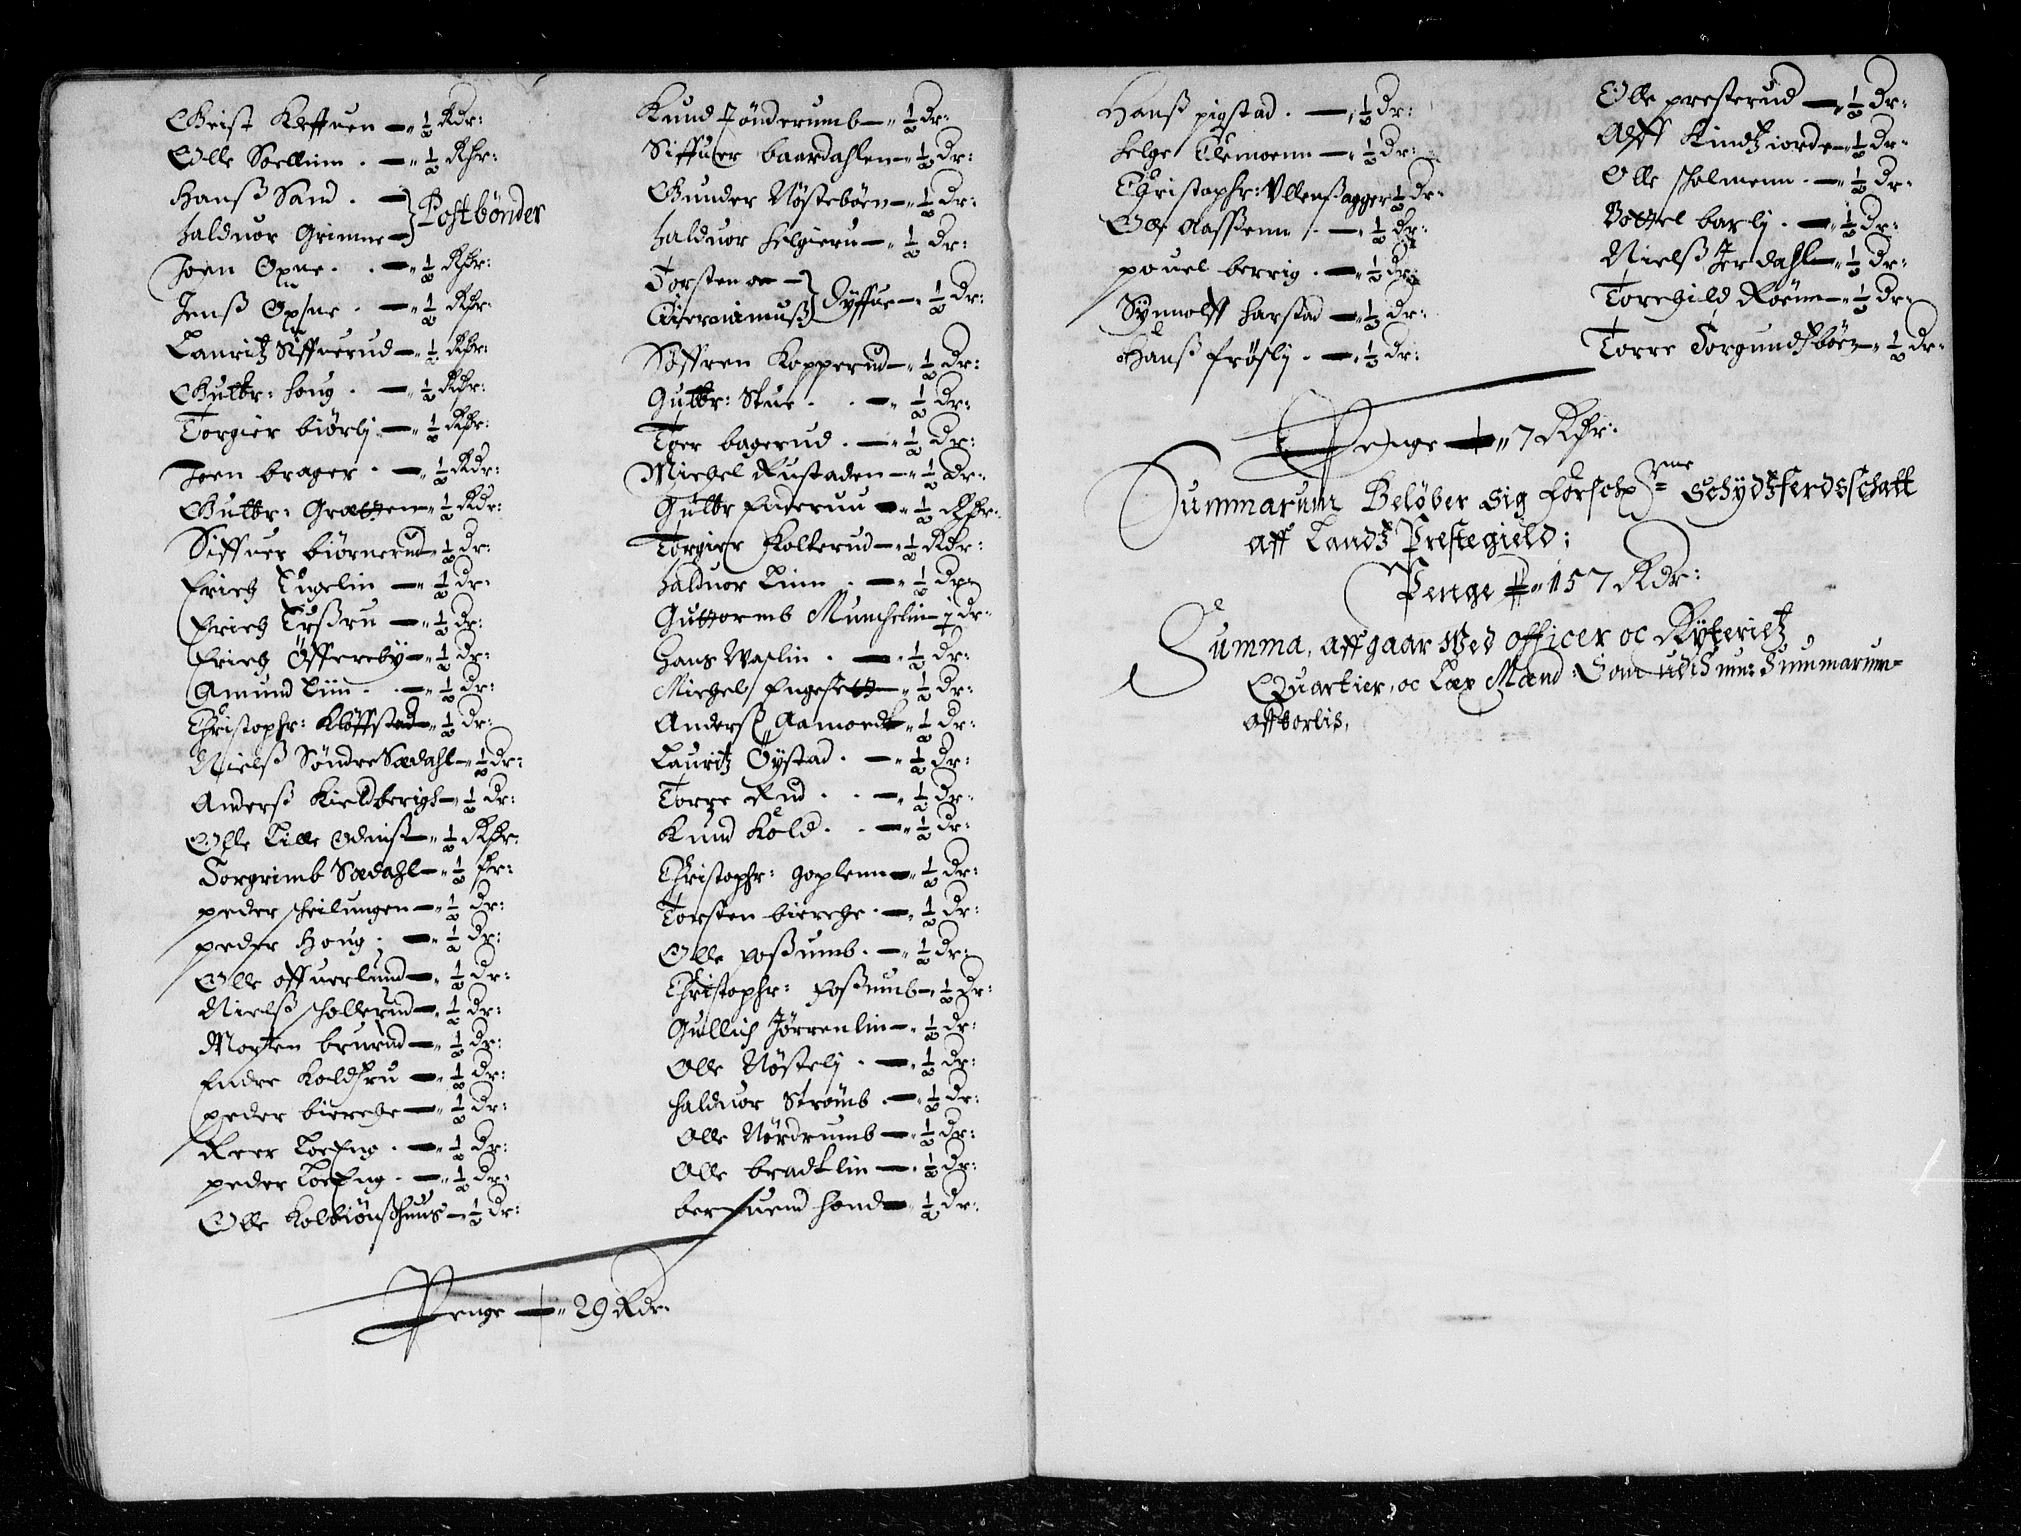 Geist Kleffuen — ½ Rdr:
Olle Sollium . — ½ Rdr:
Hanß Sand . —
Halduor Grimne — } Postbönder
Joen Opne . . — ½ Rdr:
Jenß Opne . — ½ Rdr:
Lauritz Siffuerud — ½ Rdr:
Guttr: houg . — ½ Rdr:
Torgier biörlj — ½ Rdr:
Joen brager . — ½ Rdr:
Guttr: Grætten — ½ Rdr:
Siffuer biörnerud — ½ dr:
Erich Engelin — ½ dr:
Erich Tyßru — ½ dr:
Erich Öffereby — ½ dr:
Amund Liin . — ½ dr:
Christophr: Klöffstad — ½ dr:
Nielß Söndre Sædahl — ½ dr:
Anderß Kieldberigh — ½ dr:
Olle Lille Odniß — ½ Rdr:
Torgrimb Sædahl — ½ dr:
peder scheilungen — ½ dr:
peder Houg . — ½ dr:
Olle offuerlund — ½ dr:
Nielß schollerud — ½ dr:
Morten brurud — ½ dr:
Endre Koldhru — ½ dr:
peder bierche — ½ dr:
Peer LoeEng . — ½ dr:
peder LoeEng . — ½ dr:
Olle Kolbiönßhuus — ½ dr:
Knud Tönderumb — ½ dr:
Siffuer baardahlen — ½ dr:
Gunder Nösteböen — ½ dr:
Halduor helgieru — ½ dr:
Torsten oc —
Hieronimuß } Dyffue — ½ dr:
Söffren Kopperud — ½ dr:
Guttr: Stue . . — ½ dr:
Toer bagerud . — ½ dr:
Michel Rustaden — ½ dr:
Guttr Enderuu — ½ Rdr:
Torgier Kolterud — ½ Rdr:
Halduor Linn . — ½ dr:
Guttormb Munchelin — ½ dr:
Hans Waslin . — ½ dr:
Michel Engesett — ½ dr:
Anderß Aamoedt — ½ dr:
Lauritz Öystad . — ½ dr:
Torre Rud . . — ½ dr:
Knud Kold . . — ½ dr:
Christophr: goplenn — ½ dr:
Torsten bierche . — ½ dr:
Olle foßumb . — ½ dr:
Christophr: foßumb — ½ dr:
Gullich Jörrenlin — ½ dr:
Olle Nöstelj . — ½ dr:
Halduor Strömb . — ½ dr:
Olle Nördrumb — ½ dr:
Olle bradtlin — ½ dr:
bersuend hond — ½ dr:
Penge — 29 Rdr:
Hanß pigstad . — ½ dr:
Helge Klemoenn — ½ dr:
Christophr: Ullensagger ½ dr:
Olle Aaßenn . — ½ dr:
pouel berrig . — ½ dr:
Synnolff harstad — ½ dr:
Hanß fröslj . — ½ dr:
Olle presterud — ½ dr:
Alff Kindtziorde — ½ dr:
Olle scholmenn . — ½ dr:
Bottel barlj . — ½ dr:
Nielß Jerdahl — ½ dr:
Torchild Röenn — ½ dr:
Torre Torgundtböen — ½ dr:
Penge — 7 Rdr:
Summarum Belöber sig forschr:ne Schydtzferdsschatt
aff Landtz Prestegield:
Penge — 157 Rdr:
Summa, affgaar Wed officer oc Rÿterietz
Quartier, oc Læx Mænd: Som udj Sum: Summarum
affkortis,